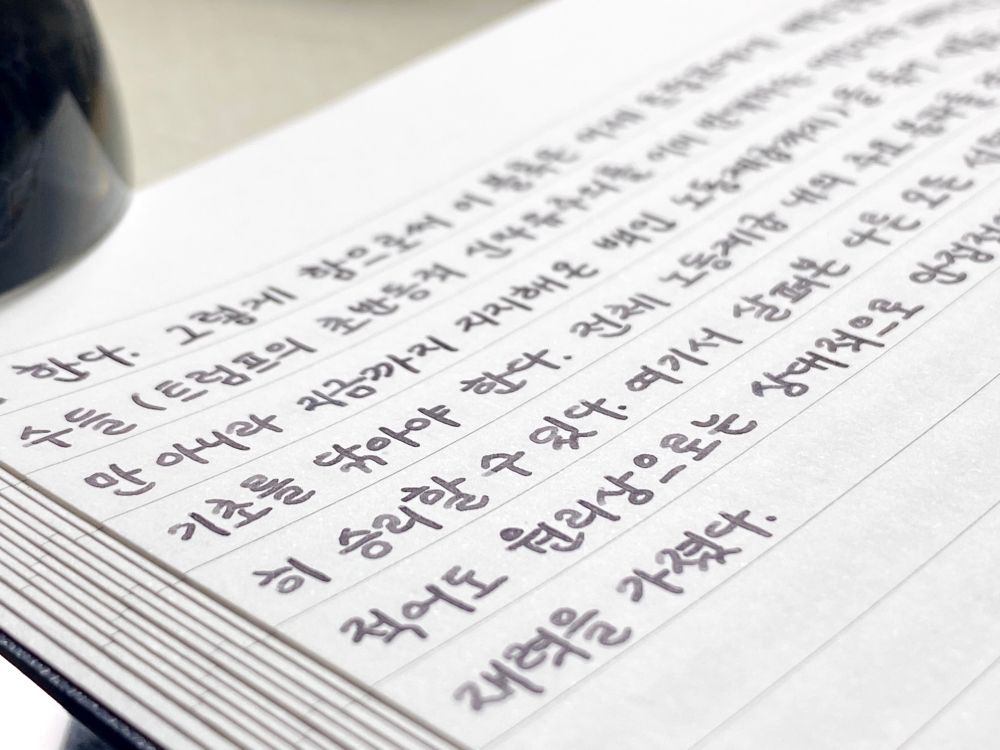 한다. 그렇게 함으로써 이 블록은 이제
수들 (트럼프의 초반동적 신자유주의를 이미 반대하는
만 아니라 지금까지 지지해온 백인 노동계급까지)을 통해
기초를 닦아야 한다. 전체 노동계급 내의 주요 분파들
히 승리할 수 있다. 여기서 살펴본 다른 모든
적어도 원리상으로는 상대적으로 안정적
재력을 가졌다.